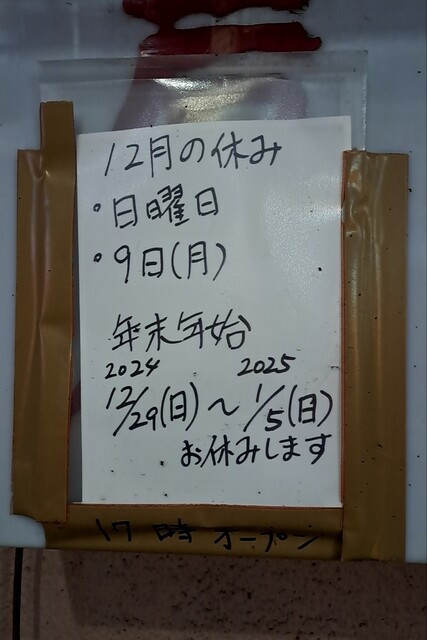 12月の休み
・日曜日
・9日(月)
年末年始
2024 2025
12/29(日)～1/5(日)
お休みします
17時オープン